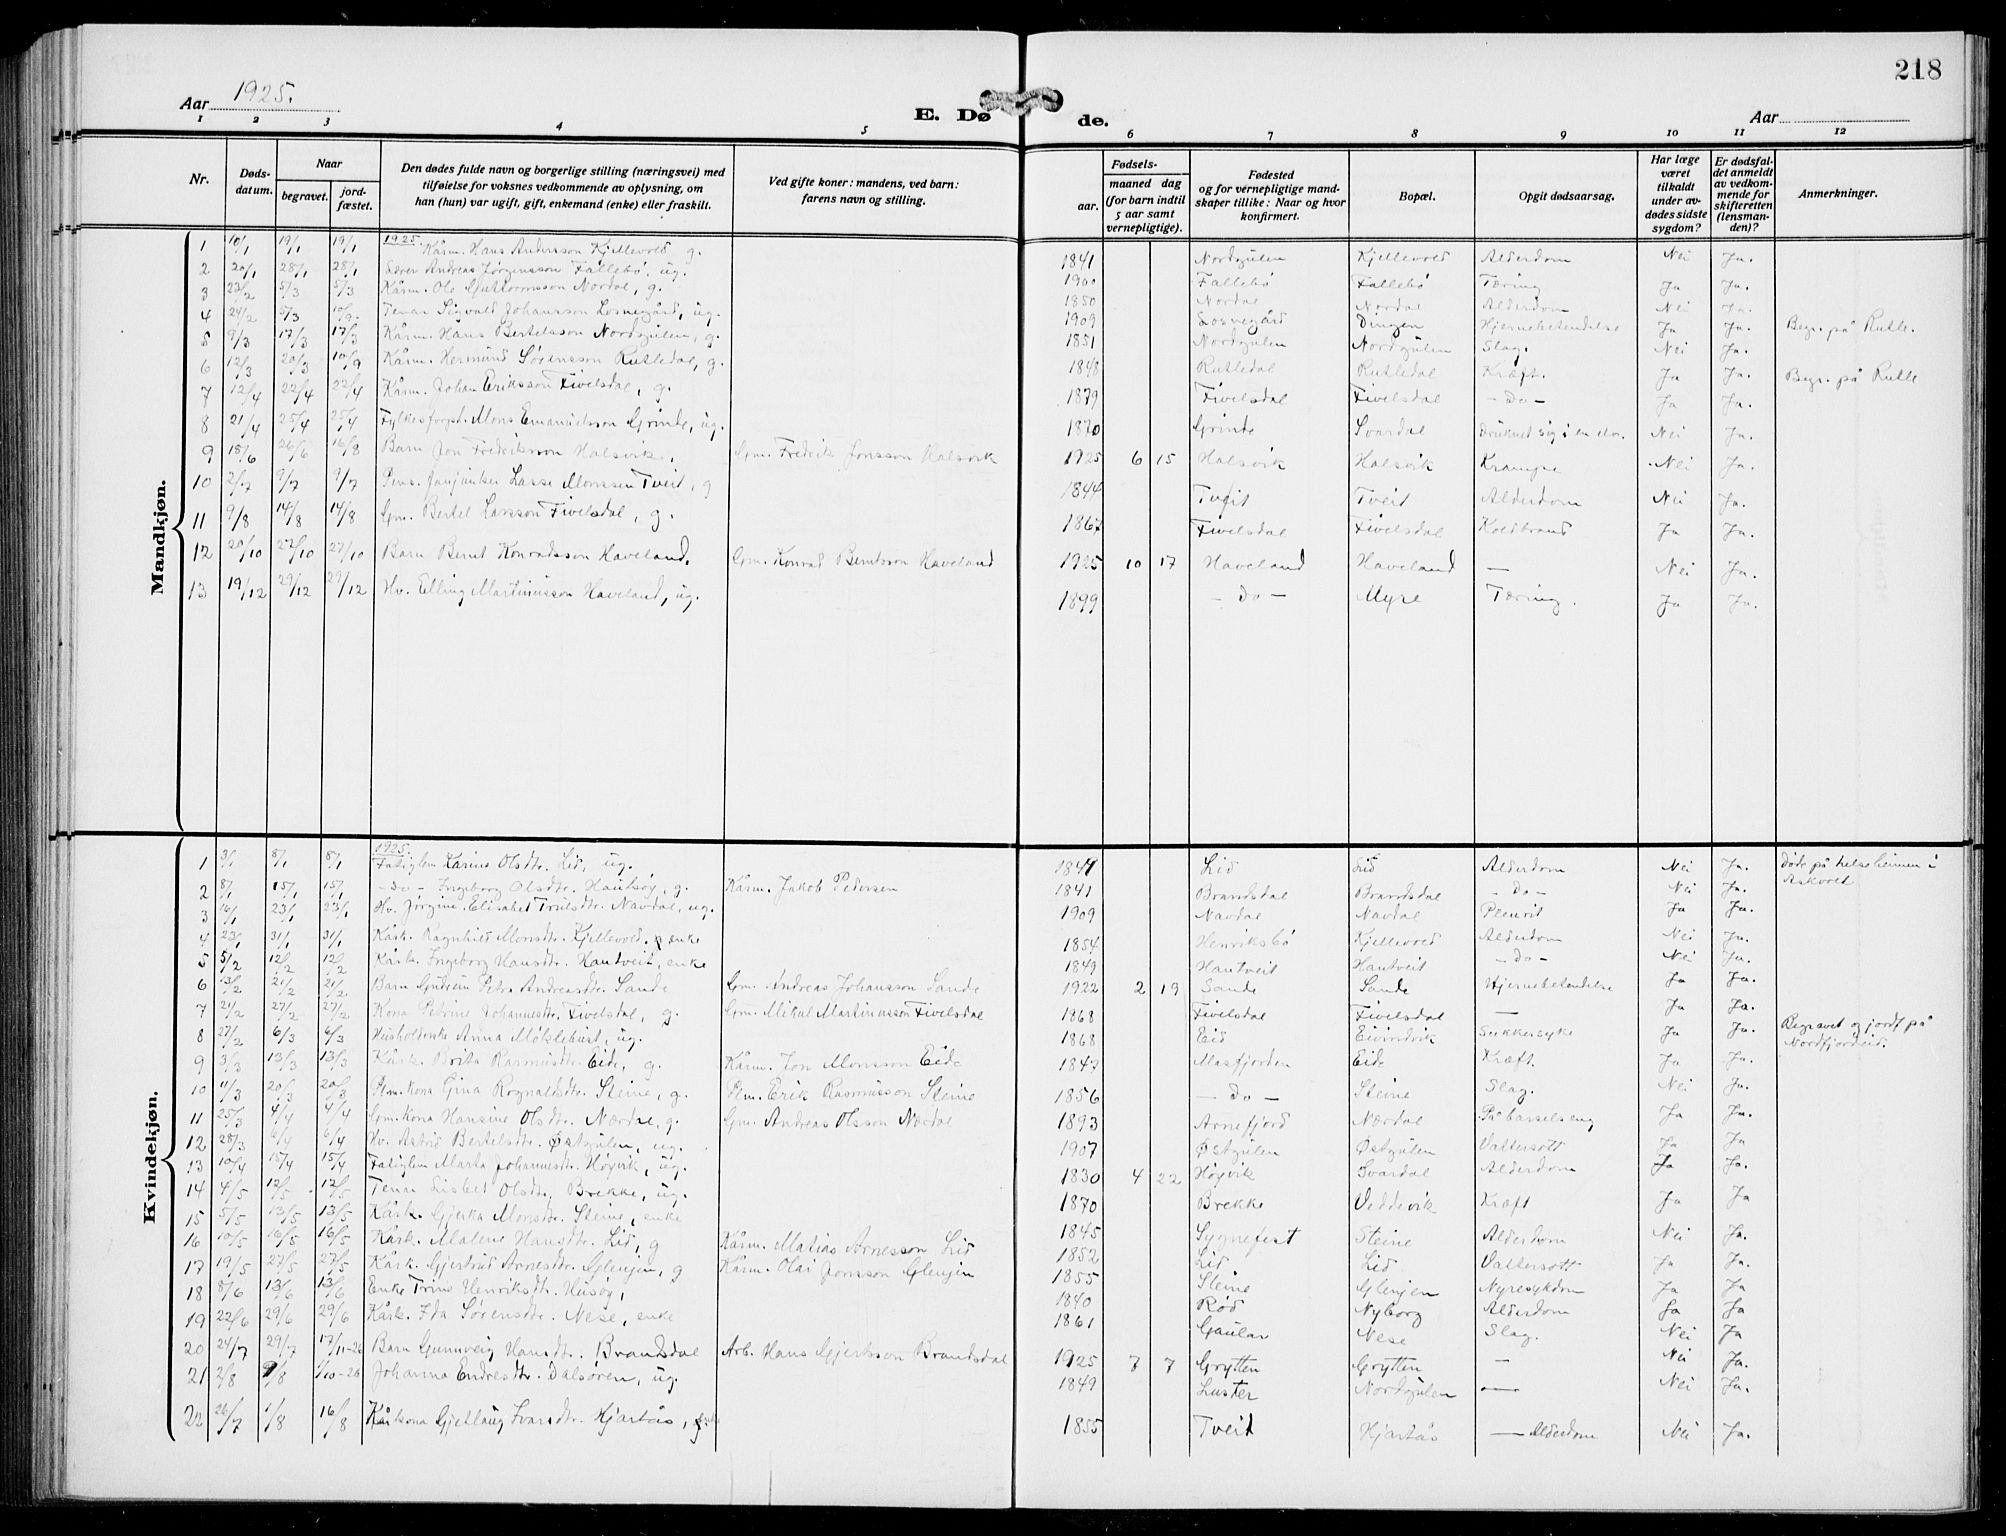 218
Aar 1925.
E. Døde.
Aar
1 2 3 4 5 6 7 8 9 10 11 12
Nr.
Døds-datum.
Naar
begravet.
jord-fæstet.
Den dødes fulde navn og borgerlige stilling (næringsvei) med
tilføielse for voksnes vedkommende av oplysning, om
han (hun) var ugift, gift, enkemand (enke) eller fraskilt.
Ved gifte koner: mandens, ved barn:
farens navn og stilling.
Fødsels-
aar.
maaned dag
(for barn indtil
5 aar samt
vernepligtige).
Fødested
og for vernepligtige mand-
skaper tillike: Naar og hvor
konfirmert.
Bopæl.
Opgit dødsaarsag.
Har læge
været
tilkaldt
under av-
dødes sidste
sygdom?
Er dødsfal-
det anmeldt
av vedkom-
mende for
skifteretten
(lensman-
den)?
Anmerkninger.
Mandkjøn.
1925.
1 10/1 19/1 19/1 Kårm. Hans Andersson Kjellevold g. 1841 Nordgulen Kjellevold Alderdom Nei Ja.
2 20/1 28/1 28/1 Elever Andreas Jørgensson Fallebø, ug. 1900 Fallebø Fallebø Tæring Ja Ja.
3 23/2 5/3 5/3 Kårm. Ole Guttormsson Nordal, g. 1850 Nordal Nordal Alderdom Nei Ja.
4 24/2 5/3 10/9. Tenar Sigvald Johansson Losnegård, ug. 1909 Losnegård Dingen Hjernebetendelse Ja Ja. Begr. på Rutle.
5 9/3 17/3 17/3 Kårm. Hans Bertelsson Nordgulen, g. 1851 Nordgulen Nordgulen Slag. Nei Ja.
6 12/3 20/3 10/9 Kårm. Hermund Sørensson Rutledal, g. 1848 Rutledal Rutledal Kræft. Ja Ja. Begr. på Rutle
7 12/4 22/4 22/4 Kårm. Johan Eriksson Fivelsdal, g. 1879 Fivelsdal Fivelsdal - Do - Ja Ja.
8 21/4 25/4 25/4 Fylkesforpl. Mons Emanuelsson Grinde, ug. 1870 Grinde Svardal Druknet sig i en elv. Nei Ja.
9 18/6 26/6 16/8 Barn Jon Fredriksson Halsvik, Gm. Fredrik Jonsson Halsvik 1925 6 15 Halsvik Halsvik Krampe Nei Ja.
10 2/7 9/7 9/7 Pens. Lasse Monssen Tveit, g 1844 Tveit Tveit Alderdom Nei Ja.
11 9/8 14/8 14/8 Gm. Bertel Larsson Fivelsdal, g. 1867 Fivelsdal Fivelsdal Koldbrand Ja Ja.
12 20/10 27/10 27/10 Barn Bernt Konradsson Haveland. Gm. Konrad Berntsson Haveland 1925 10 17 Haveland Haveland — Nei Ja.
13 19/12 29/12 29/12 Hv. Elling Martinusson Haveland, ug. 1899 - Do - Myre Tæring. Ja Ja.
Kvindekjøn.
1925.
1 3/1 8/1 8/1 Fatiglem Karina Olsdtr. Lid, ug. 1841 Lid Lid Alderdom Nei Ja. Døde på helseheimen i
Askvoll
2 8/1 15/1 15/1 - Do - Ingeborg Olsdtr. Hantsøy, g. Kårm. Jakob Pedersen 1841 Brandsdal Brandsdal - Do - Nei Ja.
3 16/1 23/1 23/1 Hv. Jørgine Elisabet Trulsdtr. Navdal, ug. 1909 Navdal Navdal Pleurit Ja Ja.
4 23/1 31/1 31/1 Kårk. Ragnhild Monsdtr. Kjellevold, enke 1854 Henriksbø Kjellevold Alderdom Nei Ja.
5 5/2 12/2 12/2 Kårk. Ingeborg Hansdtr. Hantveit, enke 1849 Hantveit Hantveit - Do - Nei Ja.
6 13/2 21/2 21/2 Barn Gudrun Petra Andreasdtr. Sande Gm. Andreas Johansson Sande 1922 2 19 Sande Sande Hjernebetendelse Ja Ja.
7 21/2 27/2 27/2 Kona Petrine Johannesdtr. Fivelsdal, g. Gm. Mikal Martinusson Fivelsdal 1868 Fivelsdal Fivelsdal — Ja Ja.
8 27/2 6/3 6/3 Husholderske Anna Møklebust, ug. 1868 Eid Eivindvik Sukkersyke Ja Ja. Begravet og jordf på
Nordfjordeid.
9 3/3 13/3 13/3 Kårk. Brita Rasmusdtr. Eide, g. Kårm. Jon Monsson Eide 1847 Masfjorden Eide Kræft. Ja Ja.
10 11/3 20/3 20/3 Plm. kona Gina Rognaldsdtr. Steine, g. Plm. Erik Rasmusson Steine 1856 - Do - Steine Slag. Nei Ja.
11 25/3 4/4 4/4 Gm. kona Hansine Olsdtr. Nærdal, g. Gm. Andreas Olsson Nærdal 1893 Arnefjord Nærdal På barselseng Ja Ja.
12 28/3 6/4 6/4 Hv. Astrid Bertelsdtr. Østgulen, ug. 1907 Østgulen Østgulen Vattersott Ja Ja
13 10/4 15/4 15/4 Fatiglem Marta Johannesdtr. Høyvik, ug. 1830 4 22 Høyvik Svardal Alderdom Ja Ja.
14 4/5 12/5 12/5 Tenar Lisbet Olsdtr. Brekke, ug. 1870 Brekke Veddevik Kræft Ja Ja
15 5/5 13/5 13/5 Kårk. Gjerta Monsdtr. Steine, enke 1845 Sygnefest Steine Alderdom Nei Ja.
16 10/5 16/5 16/5 Kårk. Malene Hansdtr. Lid, g Kårm. Matias Arnesson Lid 1852 Lid Lid Vattersott Ja Ja.
17 19/5 27/5 27/5 Kårk. Gjertrud Arnesdtr. Glenjen, g Kårm. Olai Jonsson Glenjen 1855 Steine Glenjen Nyresykdom Ja Ja
18 8/6 13/6 13/6 Enke Trina Henriksdtr. Husøy, 1840 Rød Nyborg Alderdom Ja Ja
19 22/6 29/6 29/6 Kårk. Ida Sørensdtr. Nese, enke 1861 Gaular Nese Slag. Nei Ja
20 24/7 29/7 17/11-26 Barn Gunnveig Hansdtr. Brandsdal Arb. Hans Gjertsson Brandsdal 1925 7 7 Grytten Grytten — Nei Ja.
21 2/8 9/8 1/10-26 Johanna Endresdtr. Dalsøren, ug. 1849 Luster Nordgulen — Nei Ja.
22 26/7 1/8 16/8 Kårkona Gjellaug Ivarsdtr. Hjartås, 1855 Tveit Hjartås — Alderdom Nei Ja.